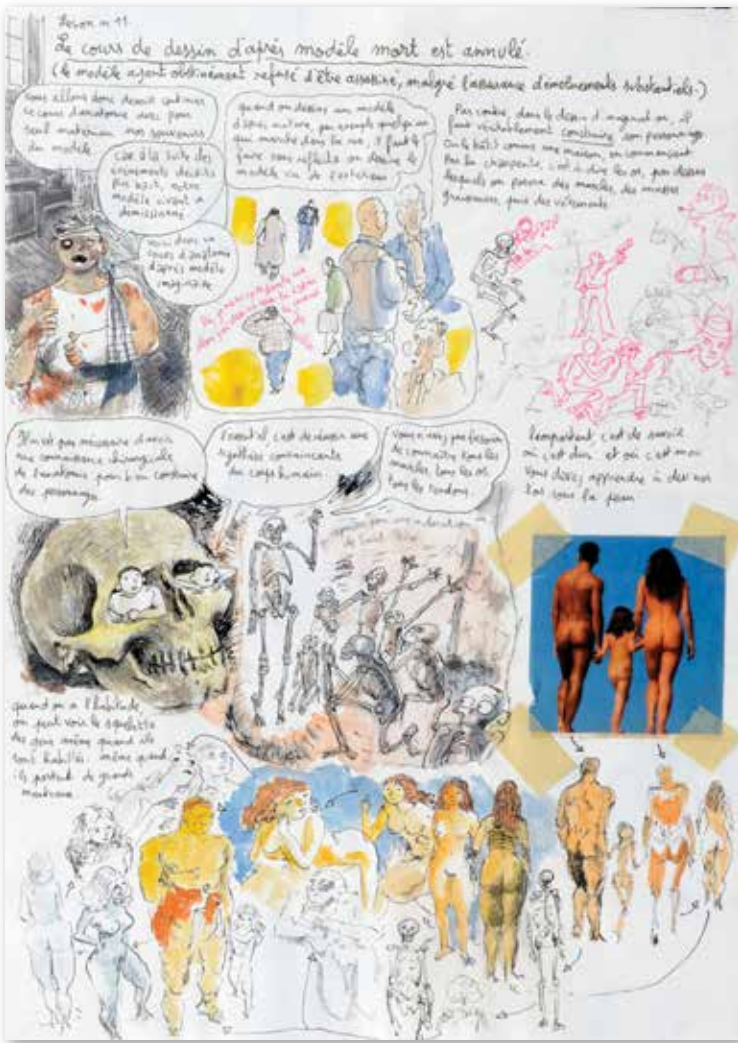 Leçon n 11
Le cours de dessin d'après modèle mort est annulé.
(le modèle ayant obstinément refusé d'être assassiné, malgré l'assurance d'émoluments substantiels.)
nous allons donc devoir continuer
le cours d'anatomie avec pour
seul matériau nos souvenirs
du modèle
car à la suite des
événements décrits
plus haut, notre
modèle vivant a
démissionné
voici donc un
cours d'anatomie
d'après modèle
imaginaire
quand on dessine un modèle
d'après nature, par exemple quelqu'un
qui marche dans la rue, il faut le
faire sans réfléchir on dessine le
modèle vu de l'extérieur
Par contre, dans le dessin d'imagination, il
faut véritablement construire son personnage
On le bâtit comme une maison, en commençant
Par la charpente, c'est à dire les os, par dessus
lesquels on pose des muscles, des masses
graisseuses, puis des vêtements.
Il n'est pas nécessaire d'avoir
une connaissance chirurgicale
de l'anatomie pour bien construire
des personnages
l'essentiel c'est de réussir une
synthèse convaincante
du corps humain
vous n'avez pas besoin
de connaître tous les
muscles, tous les os,
tous les tendons.
l'important c'est de savoir
où c'est dur et où c'est mou
vous devez apprendre à deviner
l'os sous la peau
quand on a l'habitude,
on peut voir le squelette
des gens même quand ils
sont habillés. même quand
ils portent de grands
manteaux